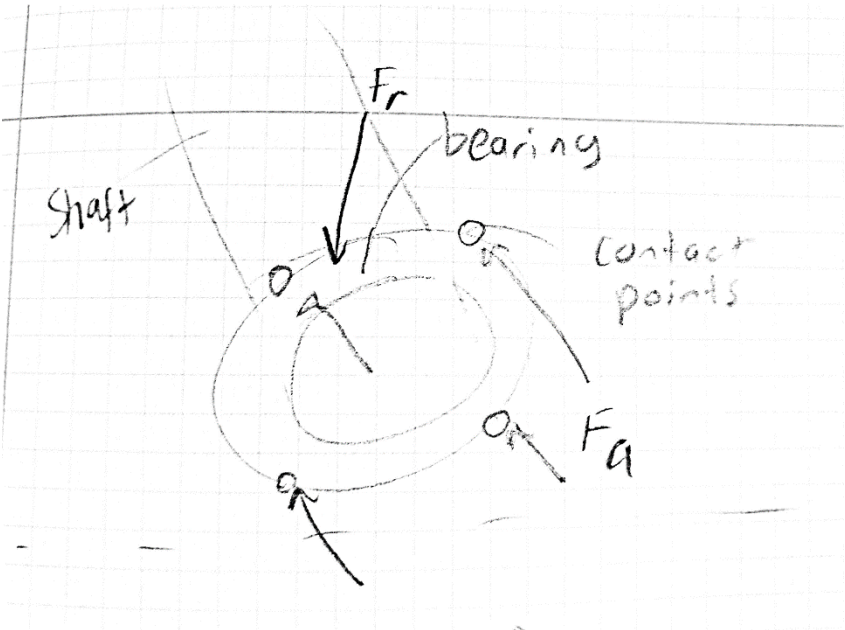 Fr
bearing
shaft
contact
points
Fa